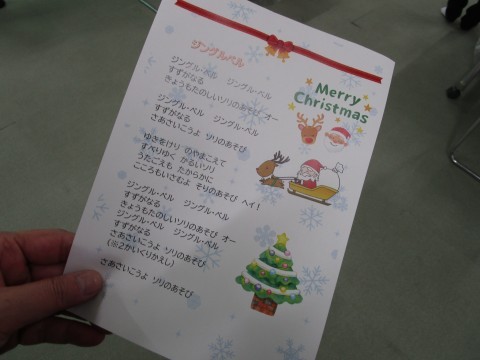 ジングルベル
ジングル・ベル　ジングル・ベル
すずがなる
きょうもたのしいソリのあそび オー
ジングル・ベル　ジングル・ベル
すずがなる
さあさいこうよ ソリのあそび
ゆきをけり のやまこえて
すべりゆく かるいソリ
うたごえも たからかに
こころもいさむよ そりのあそび ヘイ！
ジングル・ベル　ジングル・ベル
すずがなる
きょうもたのしいソリのあそび オー
ジングル・ベル　ジングル・ベル
すずがなる
さあさいこうよ ソリのあそび
(※2かいくりかえし)
さあさいこうよ ソリのあそび
Merry
Christmas